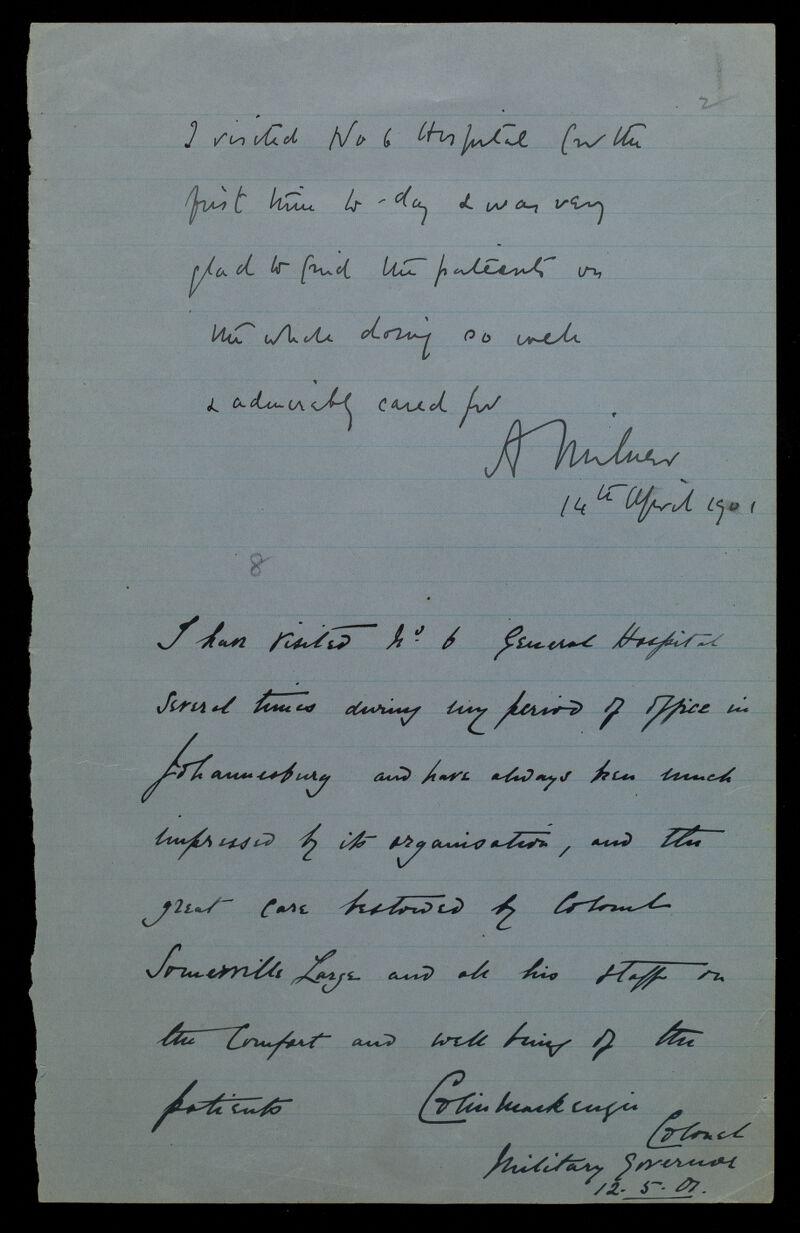 2
I visited No 6 Hospital for the
first time to-day & was very
glad to find the patients on
the whole doing so well
& admirably cared for
A Milner
14th April 1901
8
I have visited No 6 General Hospital
several times during my period of office in
Johannesburg and have always been much
impressed by its organisation, and the
great care bestowed by Colonel
Somerville Large and all his staff on
the Comfort and well being of the
patients Colin Mackenzie
Colonel
Military Governor
12-5-01.